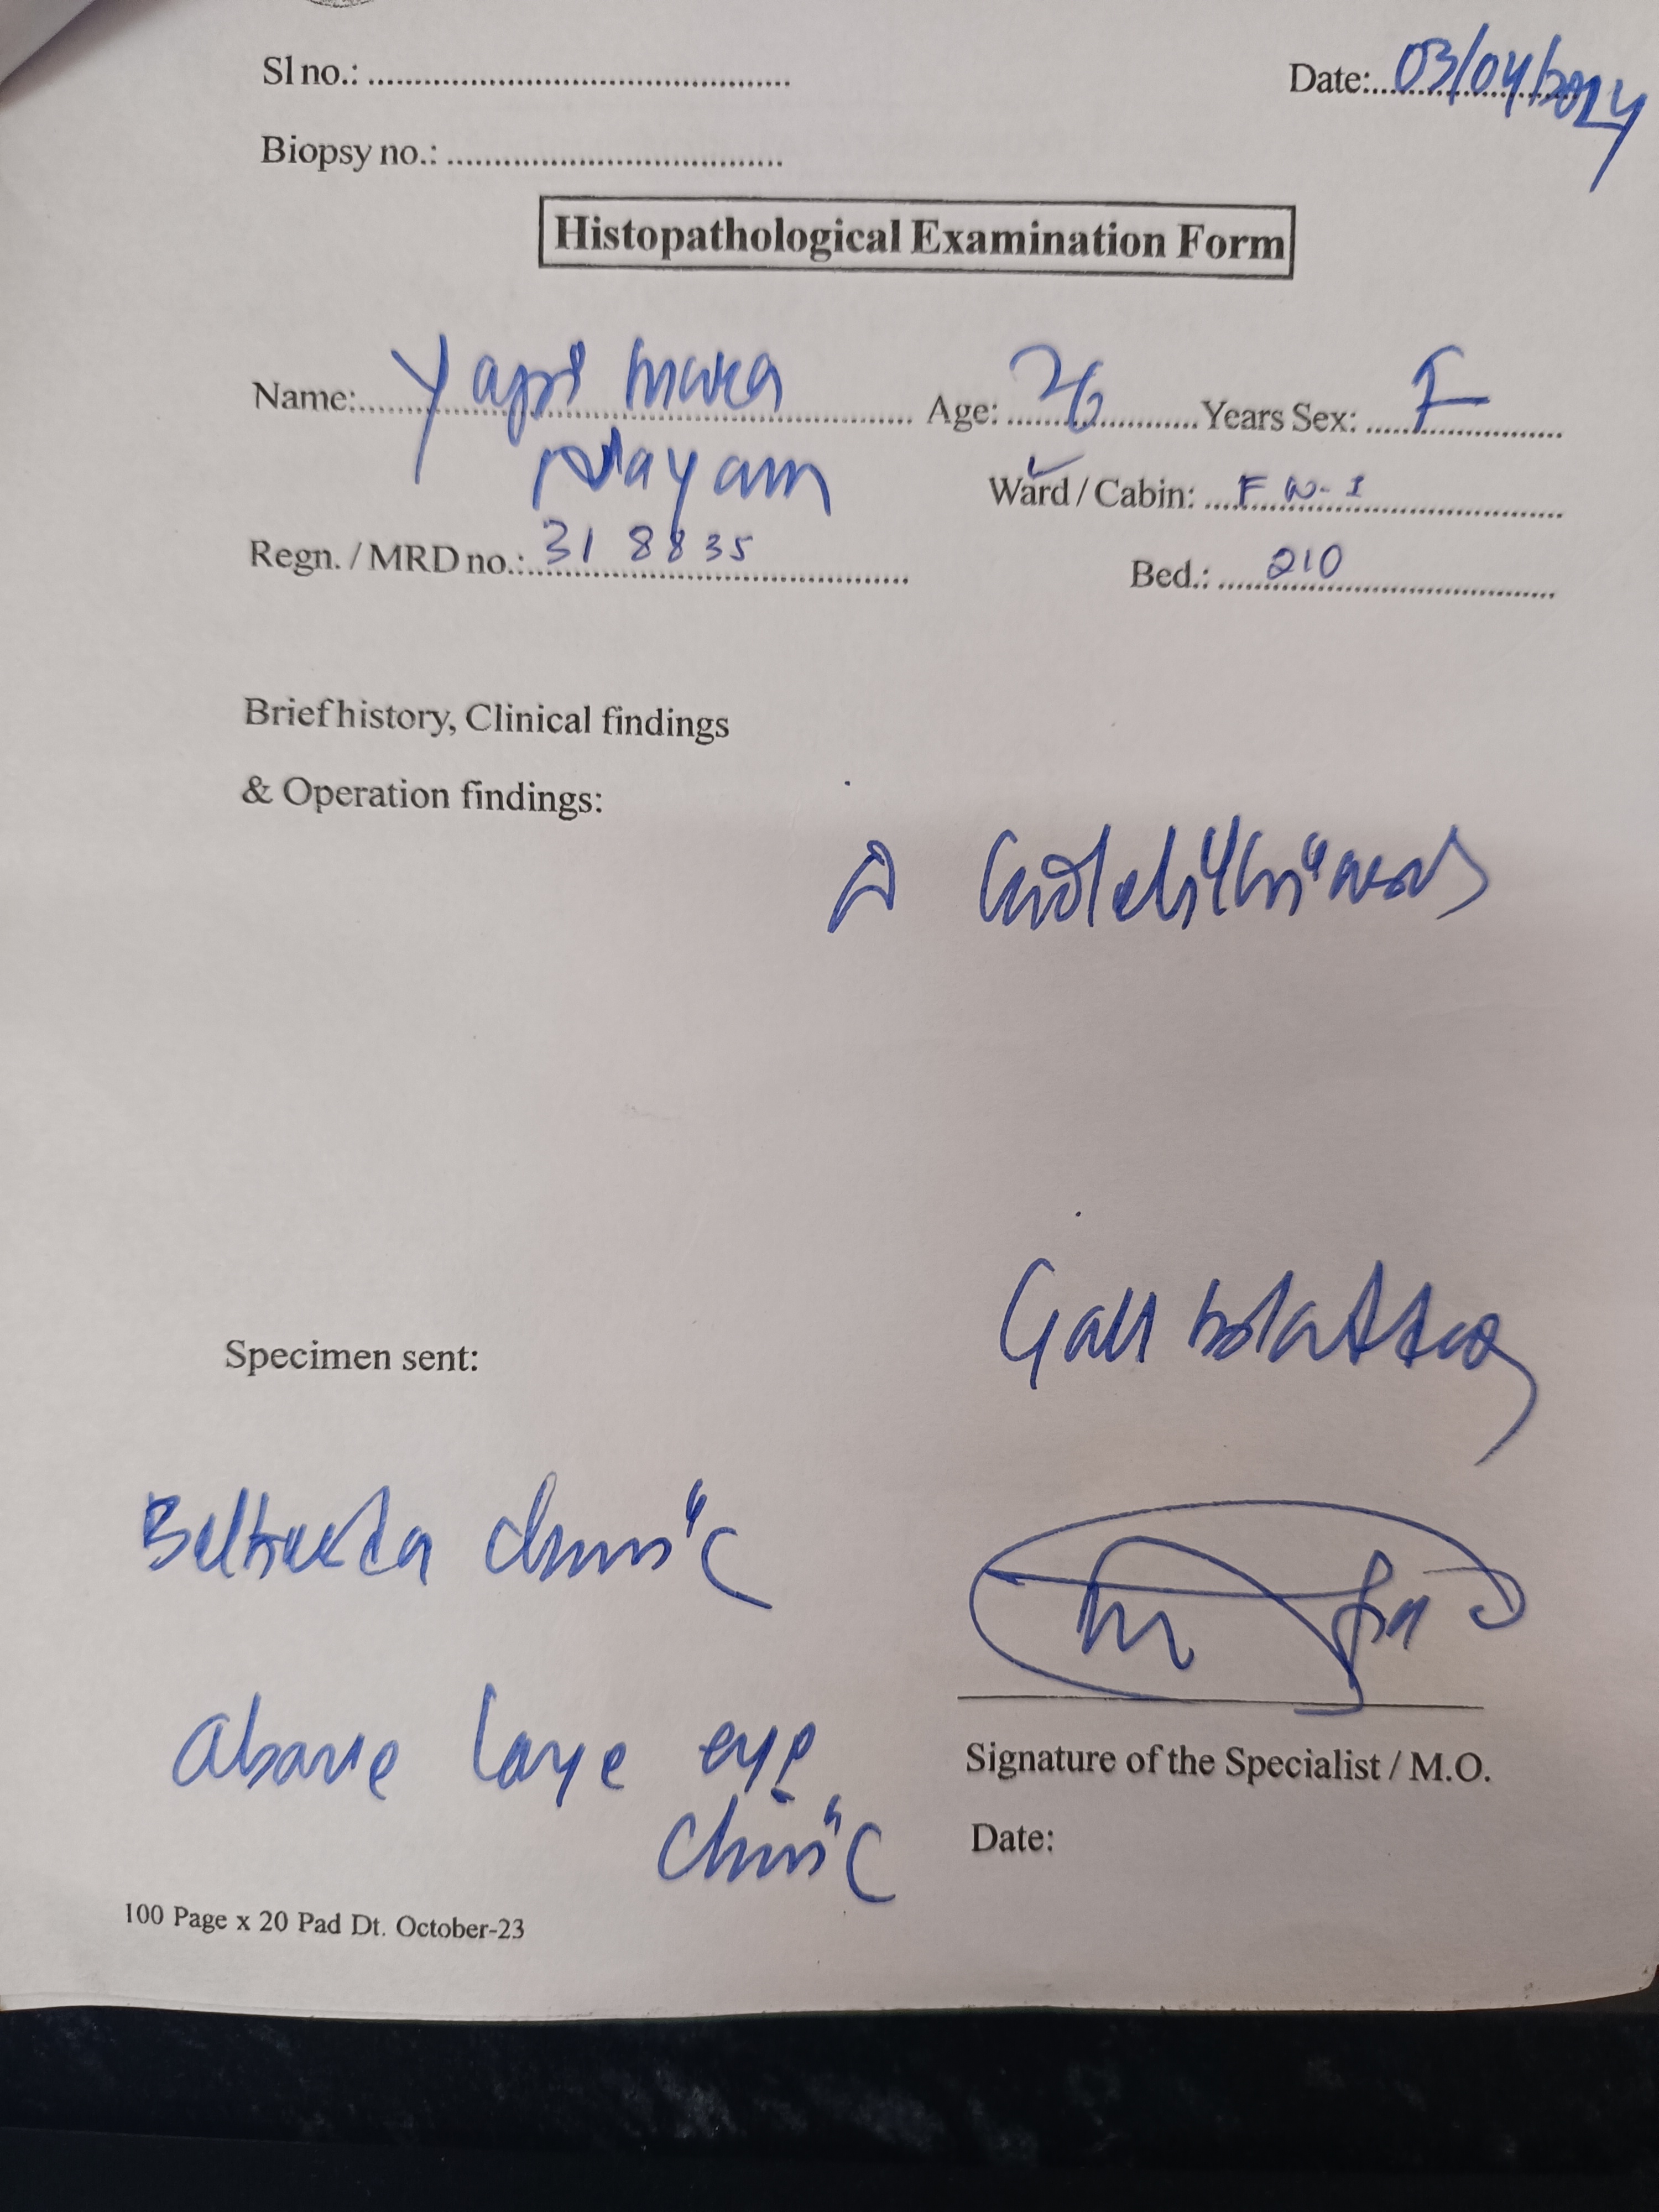 Sl no.: ........................................ Date: 03/04/2024
Biopsy no.: ....................................
Histopathological Examination Form
Name: Yapi Age: 26 Years Sex: F
Nayam Ward / Cabin: F W-I
Regn. / MRD no.: 318835 Bed.: 210
Brief history, Clinical findings
& Operation findings:
Specimen sent: Gall bladder
clinic
above Laye eye
clinic
Signature of the Specialist / M.O.
Date:
100 Page x 20 Pad Dt. October-23